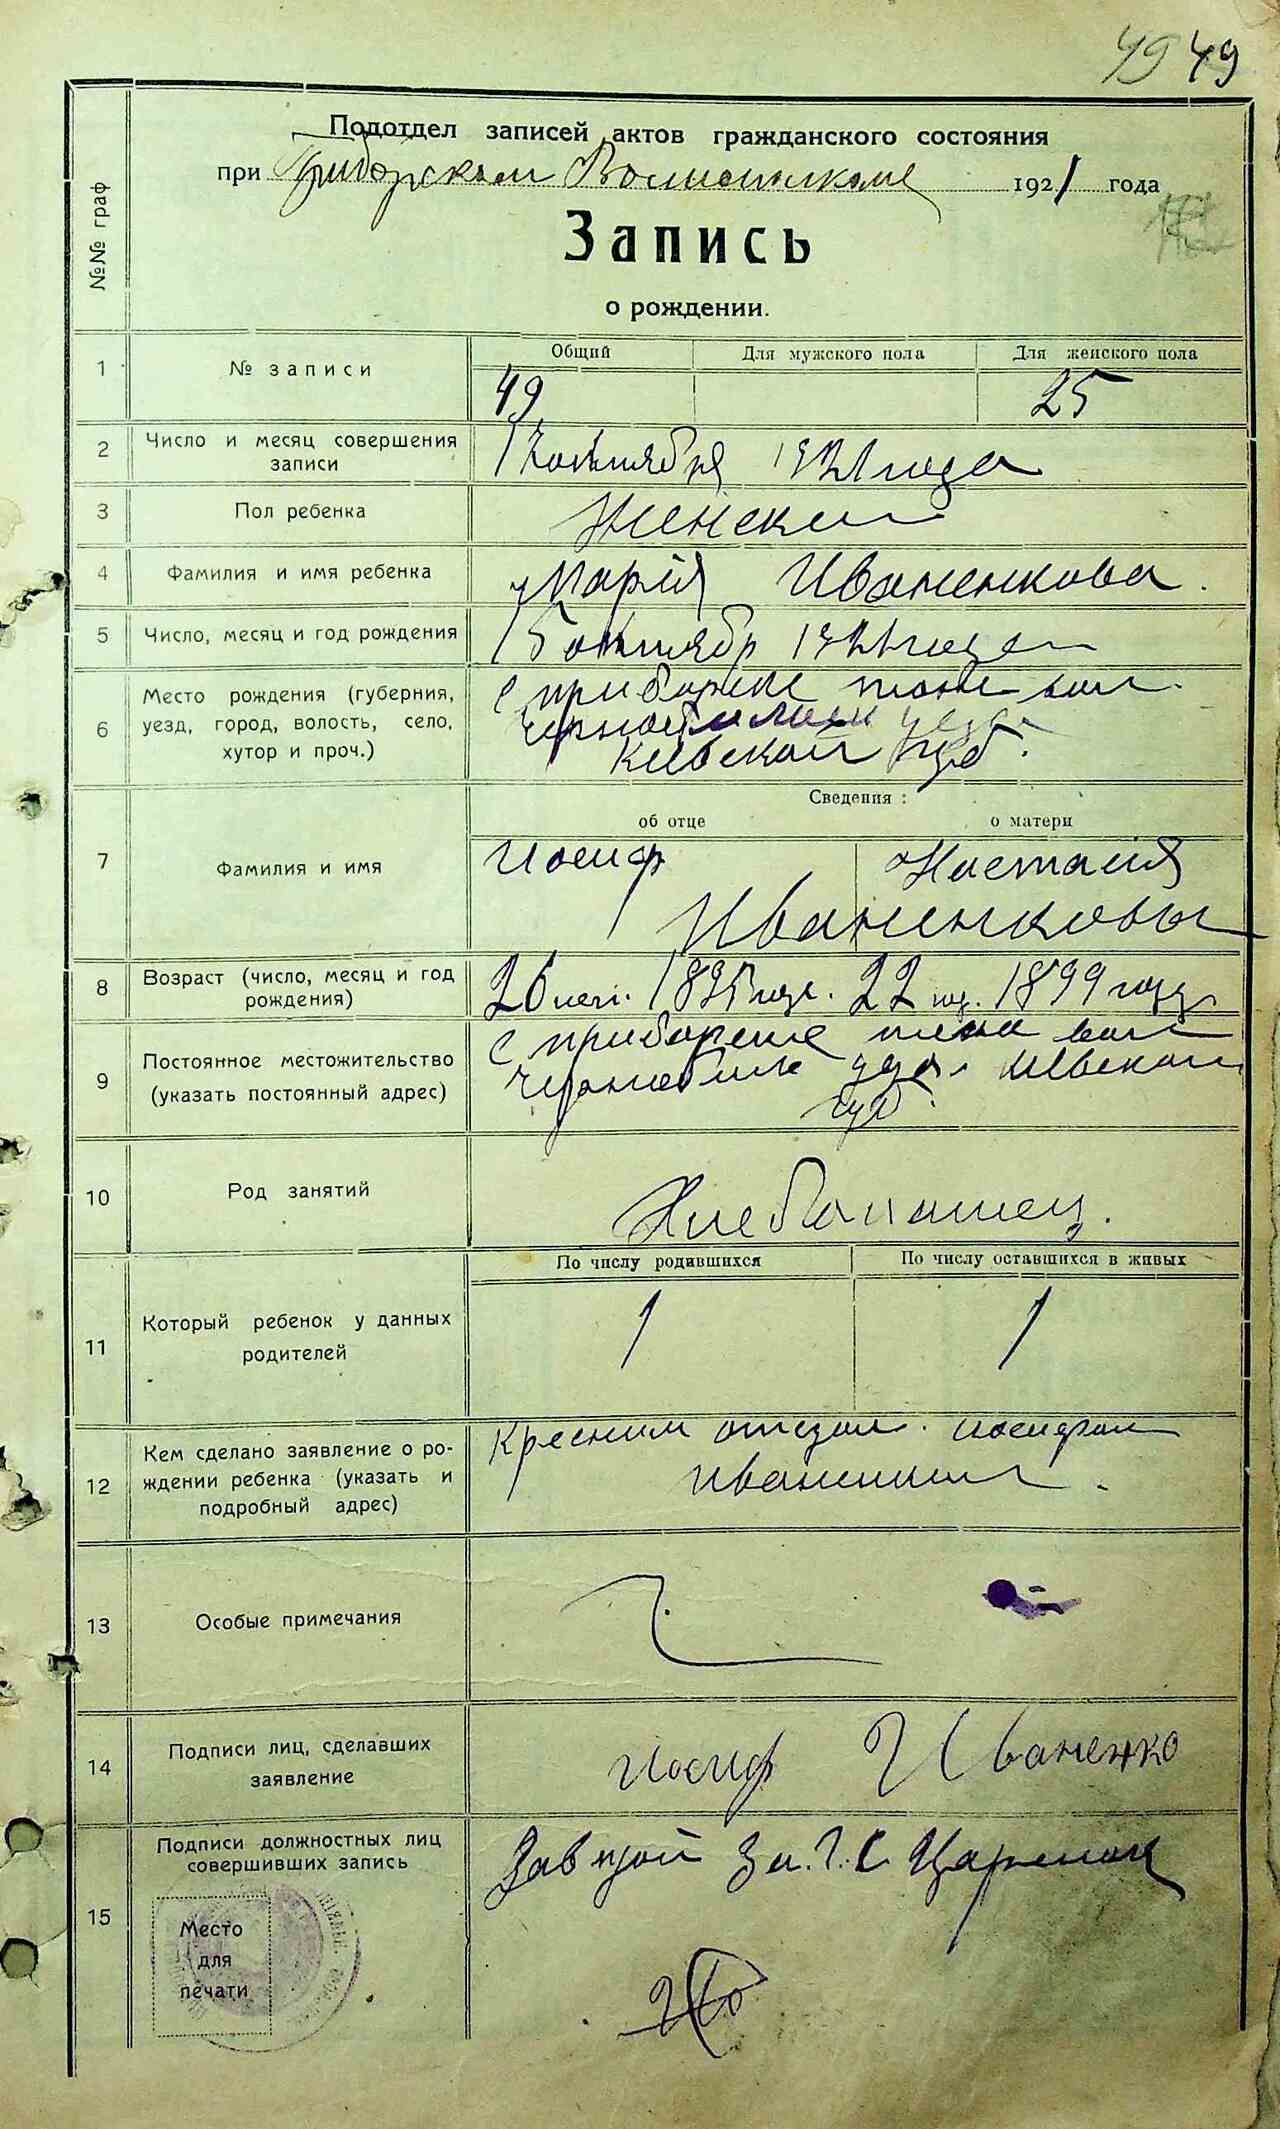 49 49
№№ граф
Подотдел записей актов гражданского состояния
при Приборском Волисполкоме 1921 года
Запись
о рождении.
1 № записи
Общий Для мужского пола Для женского пола
49 25
2 Число и месяц совершения
записи
17 октября 1921 года
3 Пол ребенка
Женски
4 Фамилия и имя ребенка
Марія Иваненкова.
5 Число, месяц и год рождения
15 октябр 1921 года
6 Место рождения (губерния,
уезд, город, волость, село,
хутор и проч.)
с приборске вол.
Киевской губ.
Сведения :
об отце о матери
7 Фамилия и имя
Иосиф Настасия
Иваненковы
8 Возраст (число, месяц и год
рождения)
26 лет. 1895 года. 22 год. 1899 году
9 Постоянное местожительство
(указать постоянный адрес)
с приборске
Киевской
губ.
10 Род занятий
Хлебопашец.
По числу родившихся По числу оставшихся в живых
11 Который ребенок у данных
родителей
1 1
12 Кем сделано заявление о ро-
ждении ребенка (указать и
подробный адрес)
отцом. иосифом
13 Особые примечания
14 Подписи лиц, сделавших
заявление
Иосиф Иваненко
15 Подписи должностных лиц
совершивших запись
Место
для
печати